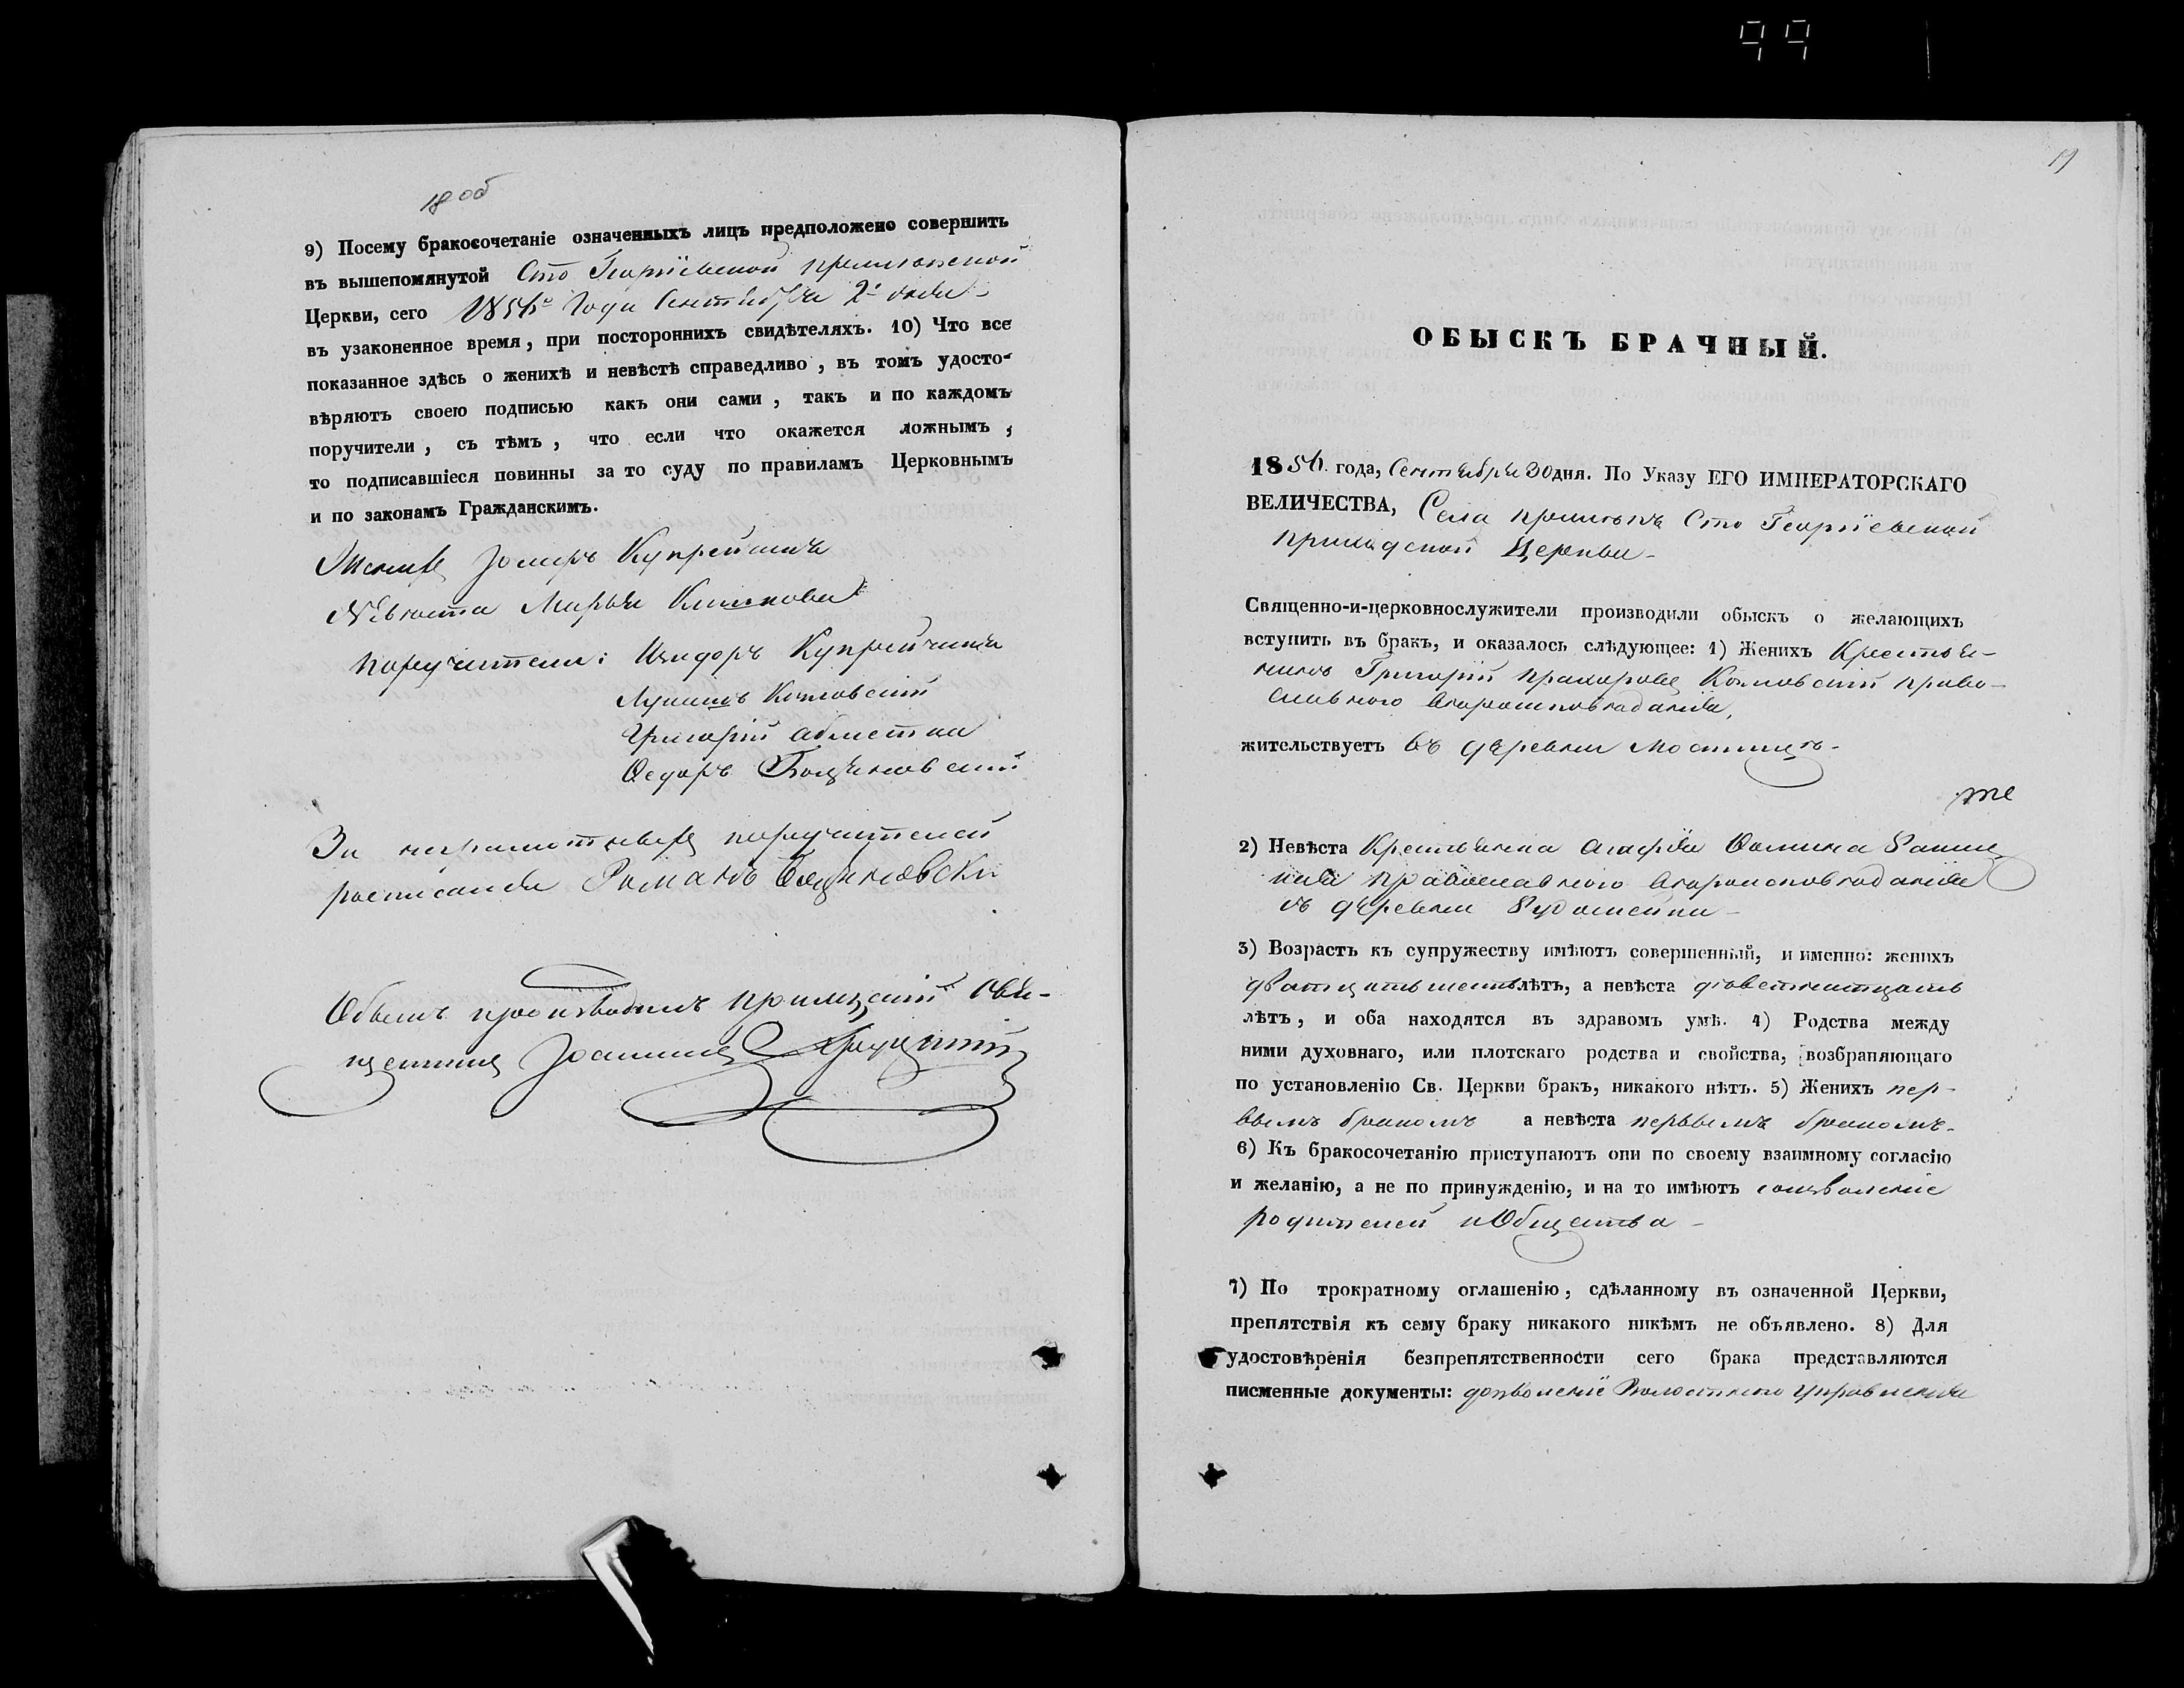 99
18 об
9) Посему бракосочетаніе означенныхъ лицъ предположено совершить
въ вышепомянутой Сто Георгіевской
Церкви, сего 1856го года Сентября 2го дня
въ узаконенное время, при постороннихъ свидѣтеляхъ. 10) Что все
показанное здѣсь о женихѣ и невѣстѣ справедливо, въ томъ удосто-
вѣряютъ своею подписью какъ они сами, такъ и по каждомъ
поручители, съ тѣмъ, что если что окажется ложнымъ,
то подписавшіеся повинны за то суду по правиламъ Церковнымъ
и по законамъ Гражданскимъ.
Женихъ
Невѣста Марья Климкова
Поручители: Исидоръ
Козловскій
Григорій
Ѳедоръ
За неграмотныхъ поручителей
росписался Романъ
Обыскъ производилъ Свя-
щенникъ Іоаннъ
19
ОБЫСКЪ БРАЧНЫЙ.
1856 года, Сентября 30 дня. По Указу ЕГО ИМПЕРАТОРСКАГО
ВЕЛИЧЕСТВА, Села Сто Георгіевской
приходской Церкви
Священно-и-церковнослужители производили обыскъ о желающихъ
вступить въ бракъ, и оказалось слѣдующее: 1) Женихъ Крестья-
нинъ Григорій Прохоровъ Козловскій право-
славного вѣроисповѣданія,
жительствуетъ въ деревни
те
2) Невѣста Крестьянка Агафія Ѳомина
православного вѣроисповѣданія
въ деревни
3) Возрастъ къ супружеству имѣютъ совершенный, и именно: женихъ
двадцать шесть лѣтъ, а невѣста девятнатцать
лѣтъ, и оба находятся въ здравомъ умѣ. 4) Родства между
ними духовнаго, или плотскаго родства и свойства, возбраняющаго
по установленію Св. Церкви бракъ, никакого нѣтъ. 5) Женихъ пер-
вымъ бракомъ а невѣста первымъ бракомъ
6) Къ бракосочетанію приступаютъ они по своему взаимному согласію
и желанію, а не по принужденію, и на то имѣютъ соизволеніе
родителей и Общества
7) По трократному оглашенію, сдѣланному въ означенной Церкви,
препятствія къ сему браку никакого никѣмъ не объявлено. 8) Для
удостовѣренія безпрепятственности сего брака представляются
писменные документы: дозволеніе Волостного Управленія